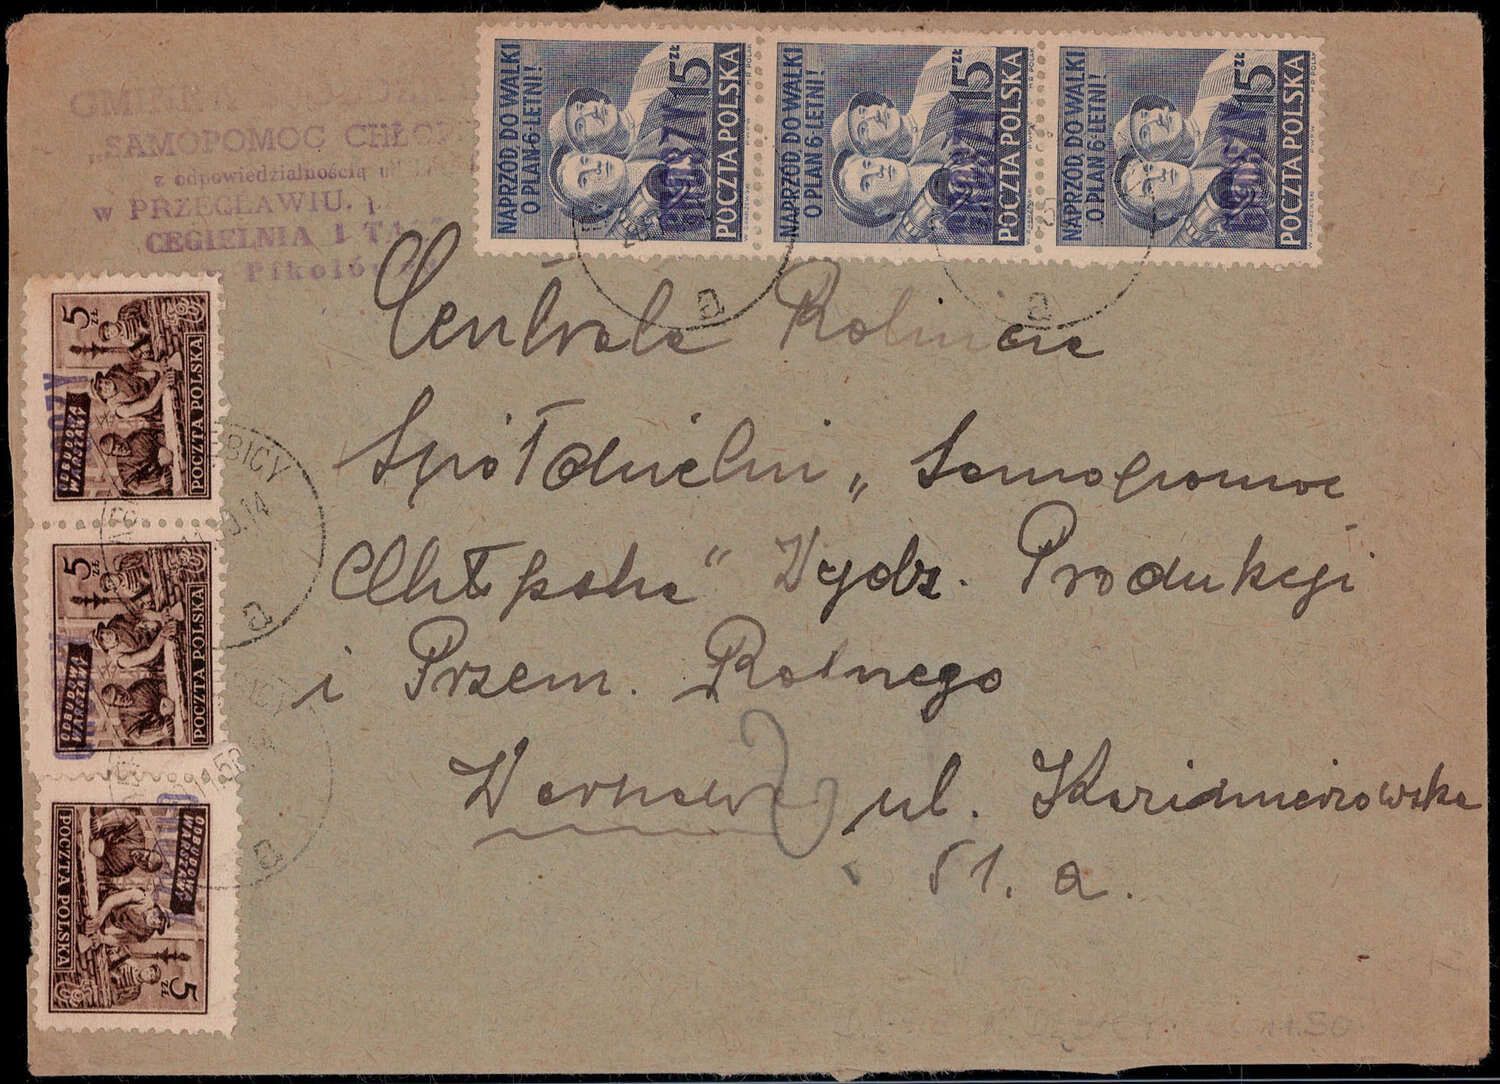 "SAMOPOMOC
z odpowiedzialnością
w PRZECŁAWIU.
CEGIELNIA I
NAPRZÓD DO WALKI
O PLAN 6-LETNI!
15 ZŁ
POCZTA POLSKA
GROSZY
NAPRZÓD DO WALKI
O PLAN 6-LETNI!
15 ZŁ
POCZTA POLSKA
GROSZY
NAPRZÓD DO WALKI
O PLAN 6-LETNI!
15 ZŁ
POCZTA POLSKA
GROSZY
a
a
5 ZŁ
ODBUDOWA
WARSZAWY
POCZTA POLSKA
5 ZŁ
ODBUDOWA
WARSZAWY
POCZTA POLSKA
5 ZŁ
ODBUDOWA
WARSZAWY
POCZTA POLSKA
a
a
Centrala Rolnicza
Spółdzielni „Samopomoc
Chłopska" Wydz. Produkcji
i Przem. Rolnego
Warszawa ul. Kazimierzowska
51. a.